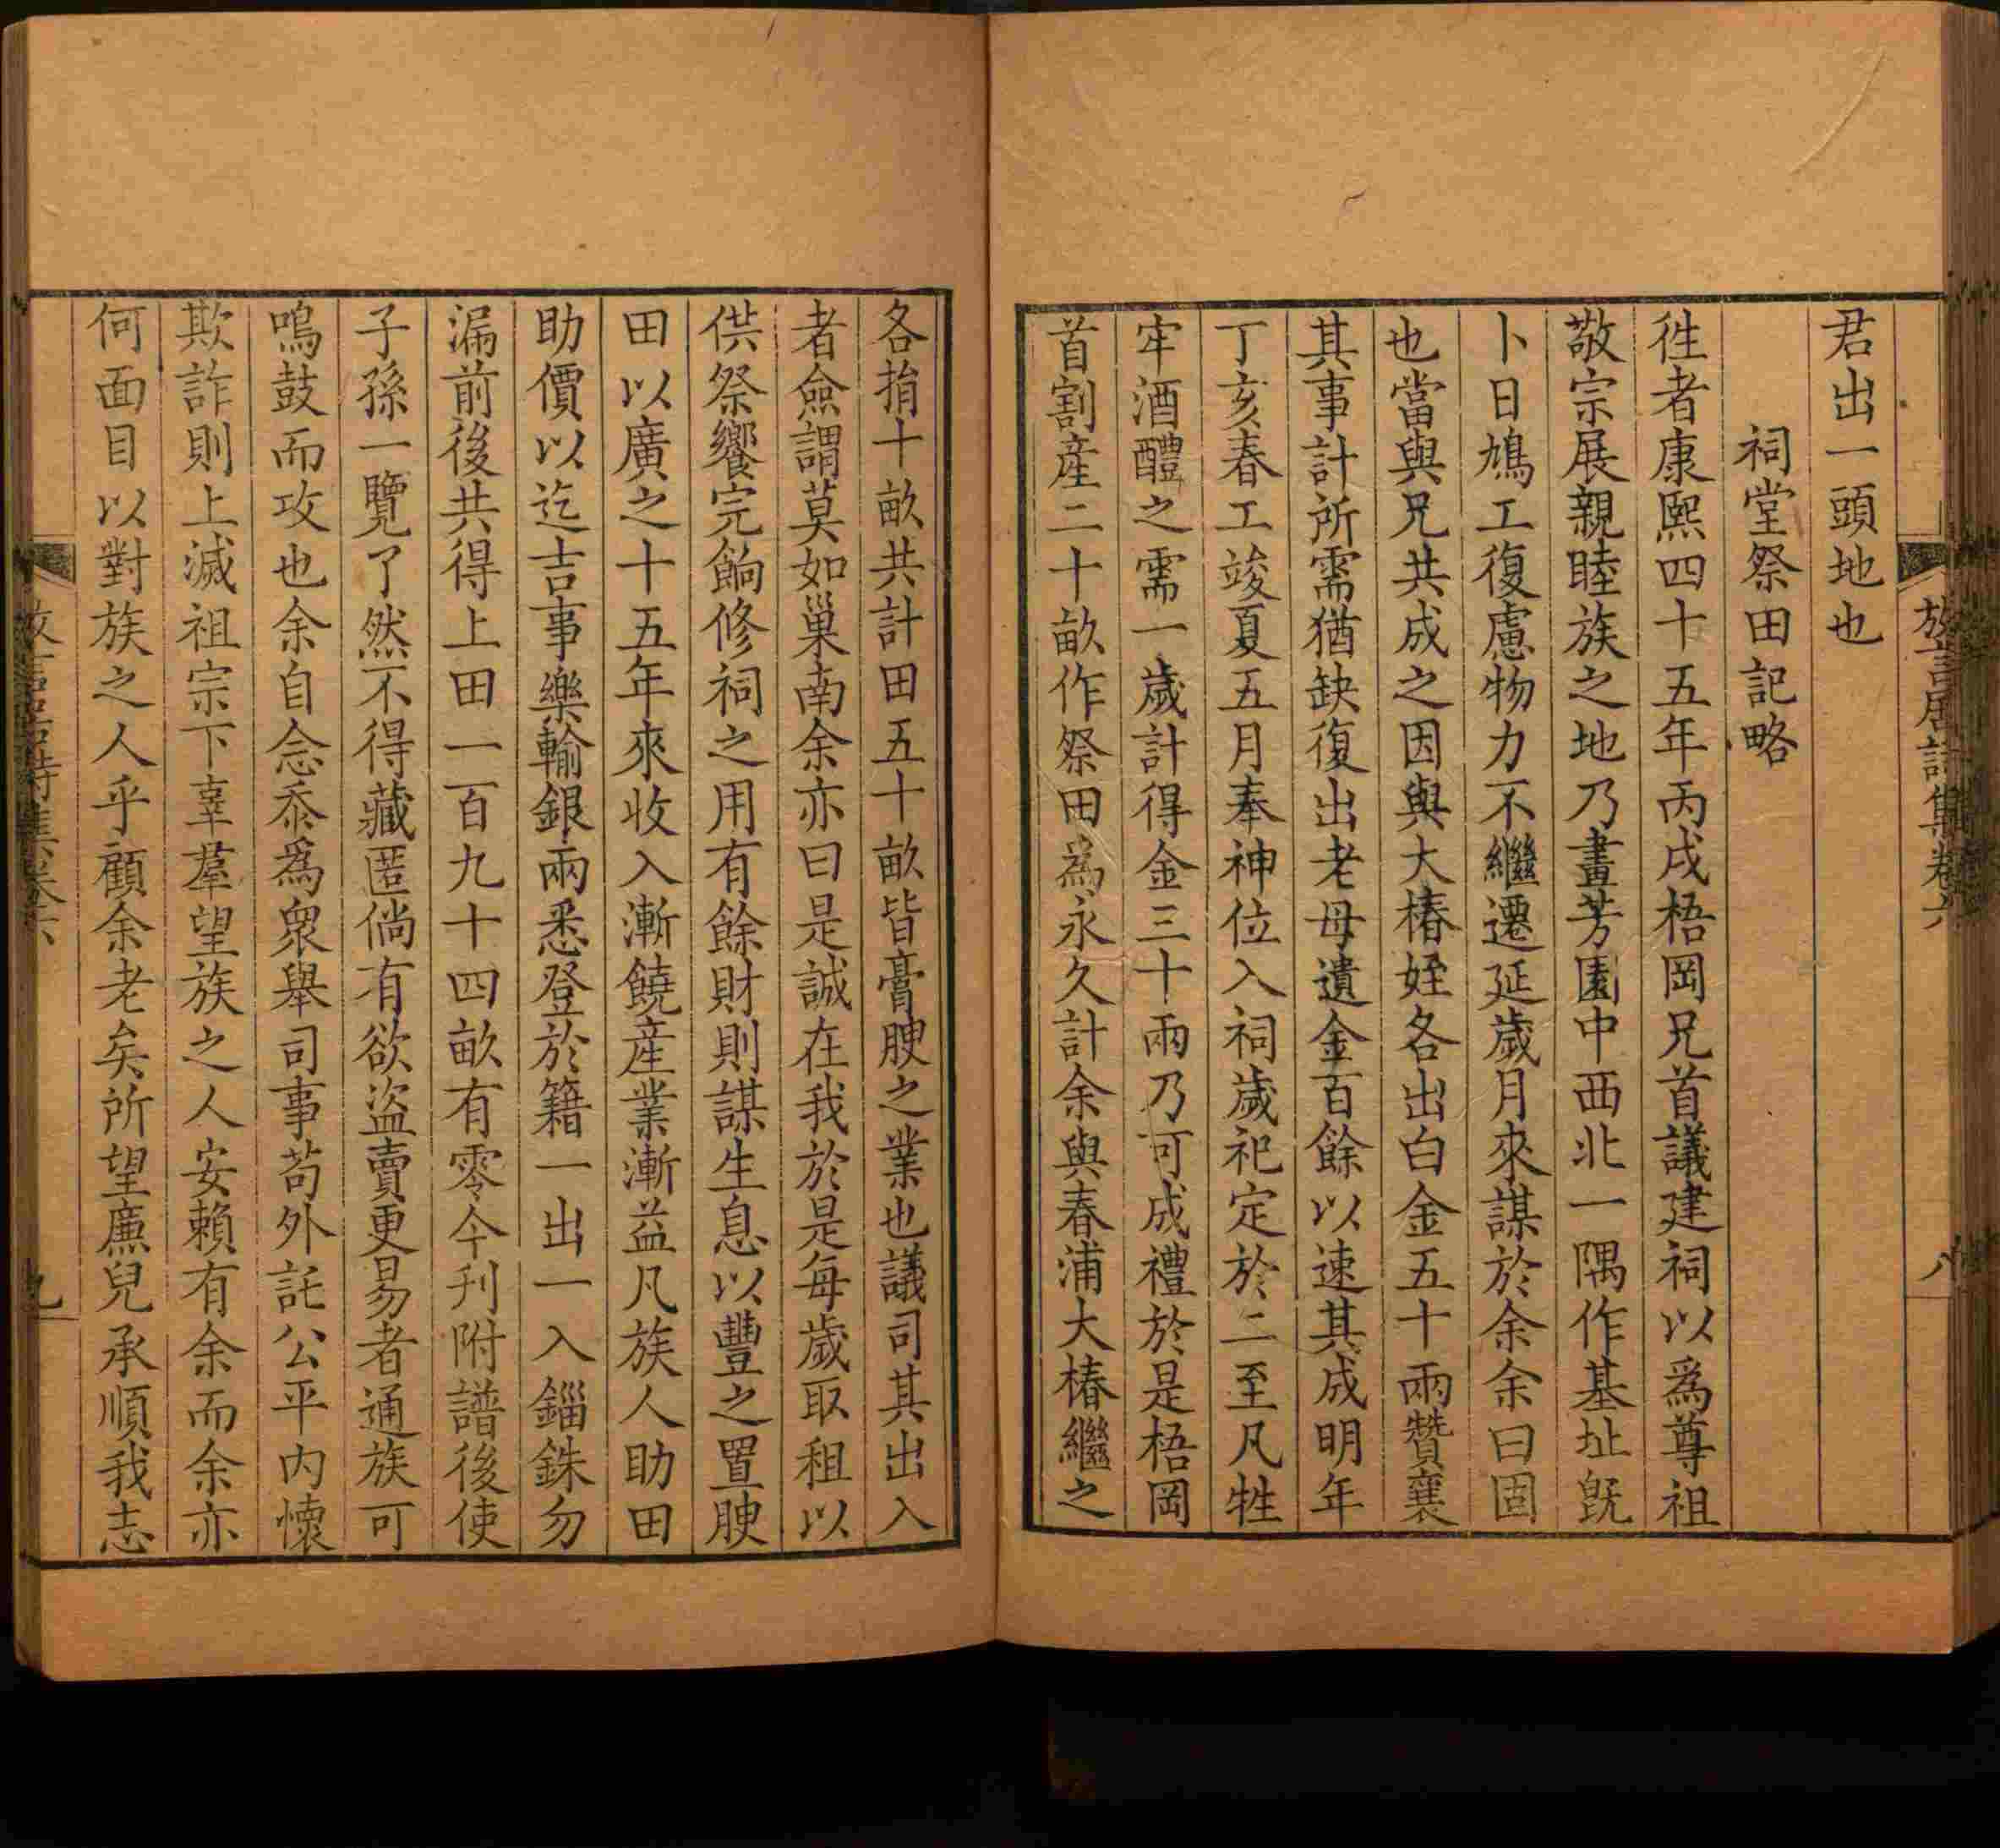 放言居詩集卷六
八
君出一頭地也
祠堂祭田記略
徃者康熙四十五年丙戌梧岡兄首議建祠以爲尊祖
敬宗展親睦族之地乃畫芳園中西北一隅作基址旣
卜日鳩工復慮物力不繼遷延歲月來謀於余余曰固
也當與兄共成之因與大椿姪各出白金五十兩贊襄
其事計所需猶缺復出老母遺金百餘以速其成明年
丁亥春工竣夏五月奉神位入祠歲祀定於二至凡牲
牢酒醴之需一歲計得金三十兩乃可成禮於是梧岡
首割産二十畝作祭田爲永久計余與春浦大椿繼之
各捐十畝共計田五十畝皆膏腴之業也議司其出入
者僉謂莫如巢南余亦曰是誠在我於是每歲取租以
供祭饗完餉修祠之用有餘財則謀生息以豐之置腴
田以廣之十五年來收入漸饒産業漸益凡族人助田
助價以迄吉事樂輸銀兩悉登於籍一出一入錙銖勿
漏前後共得上田一百九十四畝有零今刋附譜後使
子孫一覽了然不得藏匿倘有欲盜賣更易者通族可
鳴鼓而攻也余自念忝爲衆舉司事苟外託公平內懷
欺詐則上滅祖宗下辜羣望族之人安賴有余而余亦
何面目以對族之人乎顧余老矣所望廉兒承順我志
放言居詩集卷六
九